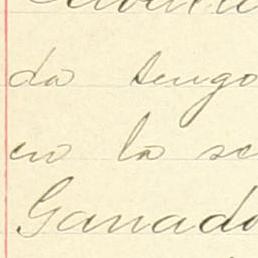 da tengo
en la se
Ganado